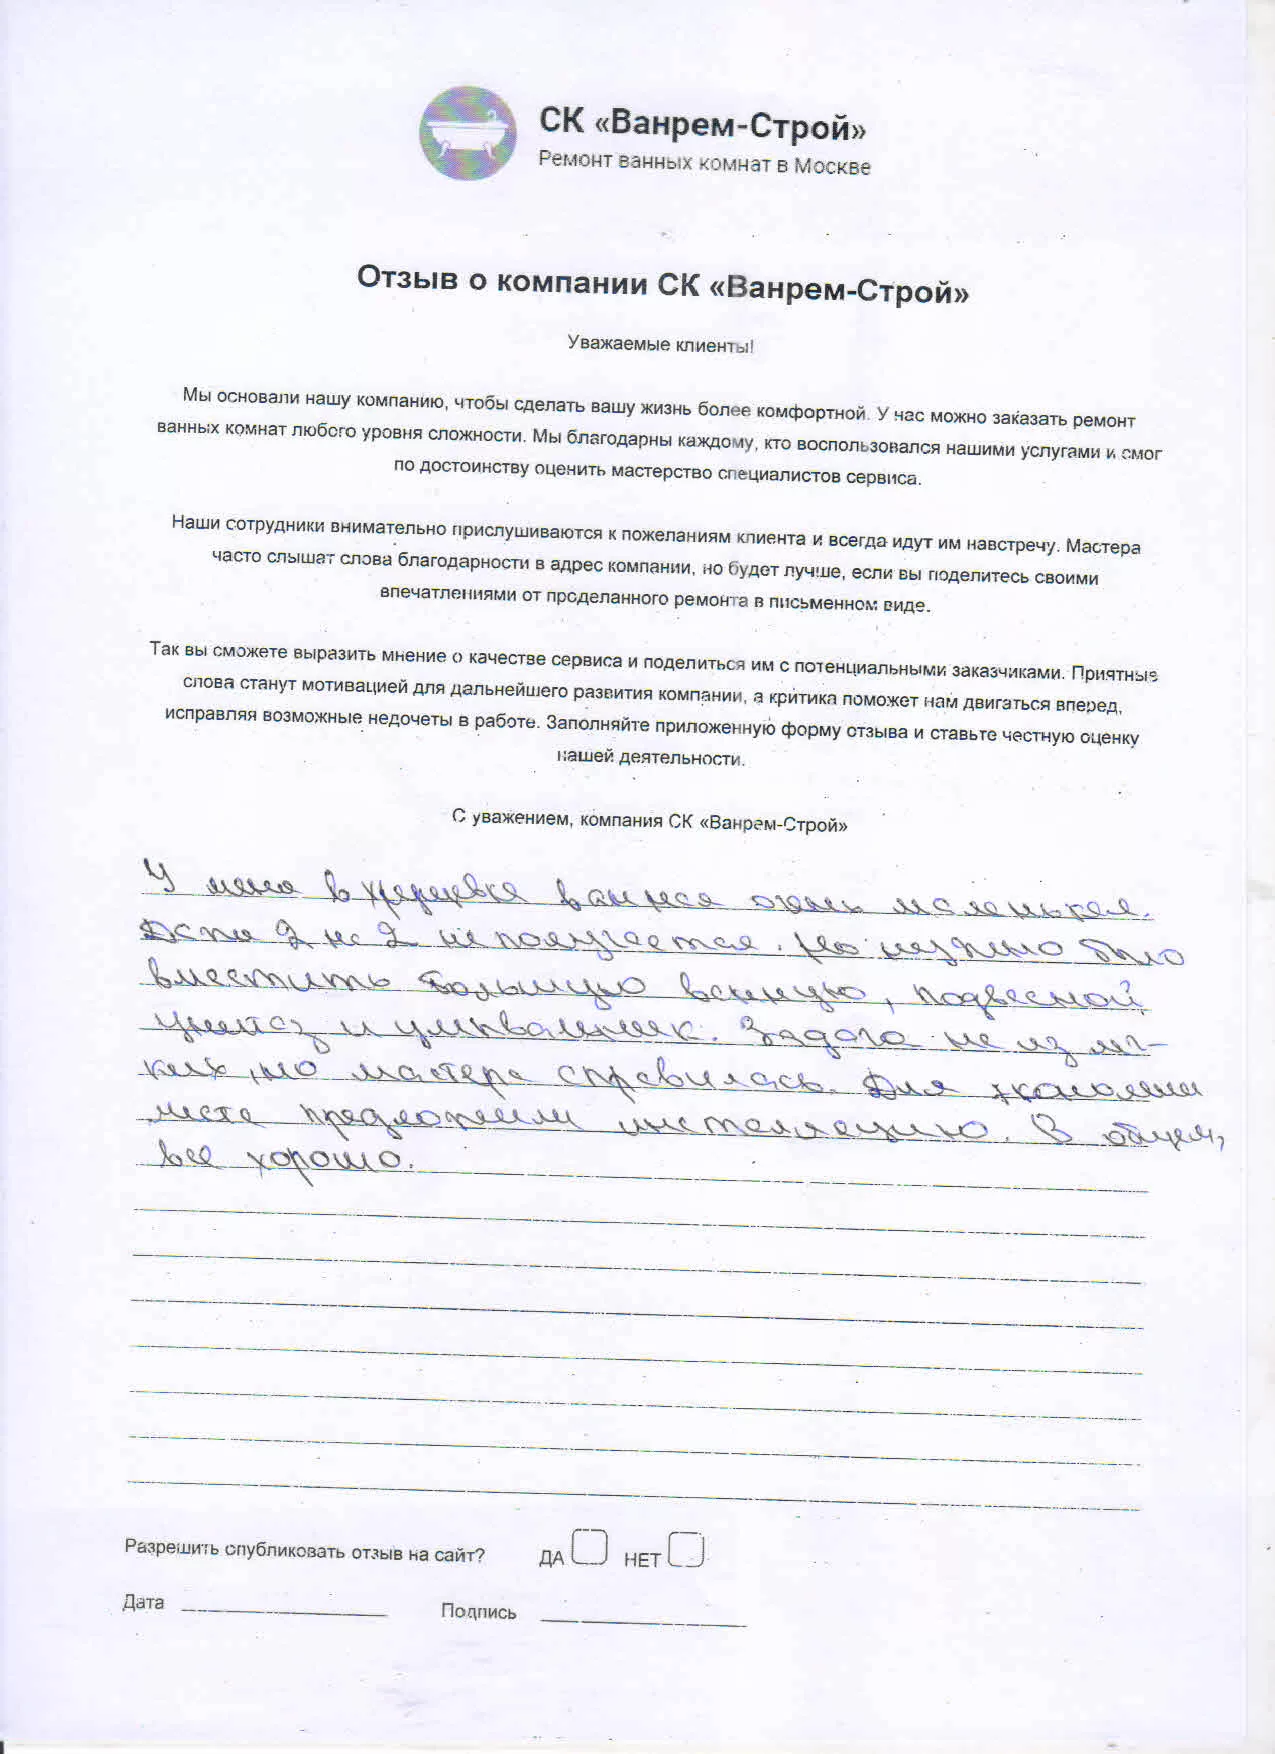 СК «Ванрем-Строй»
Ремонт ванных комнат в Москве
Отзыв о компании СК «Ванрем-Строй»
Уважаемые клиенты!
Мы основали нашу компанию, чтобы сделать вашу жизнь более комфортной. У нас можно заказать ремонт
ванных комнат любого уровня сложности. Мы благодарны каждому, кто воспользовался нашими услугами и смог
по достоинству оценить мастерство специалистов сервиса.
Наши сотрудники внимательно прислушиваются к пожеланиям клиента и всегда идут им навстречу. Мастера
часто слышат слова благодарности в адрес компании, но будет лучше, если вы поделитесь своими
впечатлениями от проделанного ремонта в письменном виде.
Так вы сможете выразить мнение о качестве сервиса и поделиться им с потенциальными заказчиками. Приятные
слова станут мотивацией для дальнейшего развития компании, а критика поможет нам двигаться вперед,
исправляя возможные недочеты в работе. Заполняйте приложенную форму отзыва и ставьте честную оценку
нашей деятельности.
С уважением, компания СК «Ванрем-Строй»
У меня в хрущевке ванная очень маленькая.
2 на 2 не получается. Но нужно было
вместить большую ванную, подвесной
унитаз и умывальник. Задача не из лег-
ких, но мастера справились. Для экономии
места предложили инсталляцию. В общем,
все хорошо.
Разрешить опубликовать отзыв на сайт? ДА НЕТ
Дата Подпись